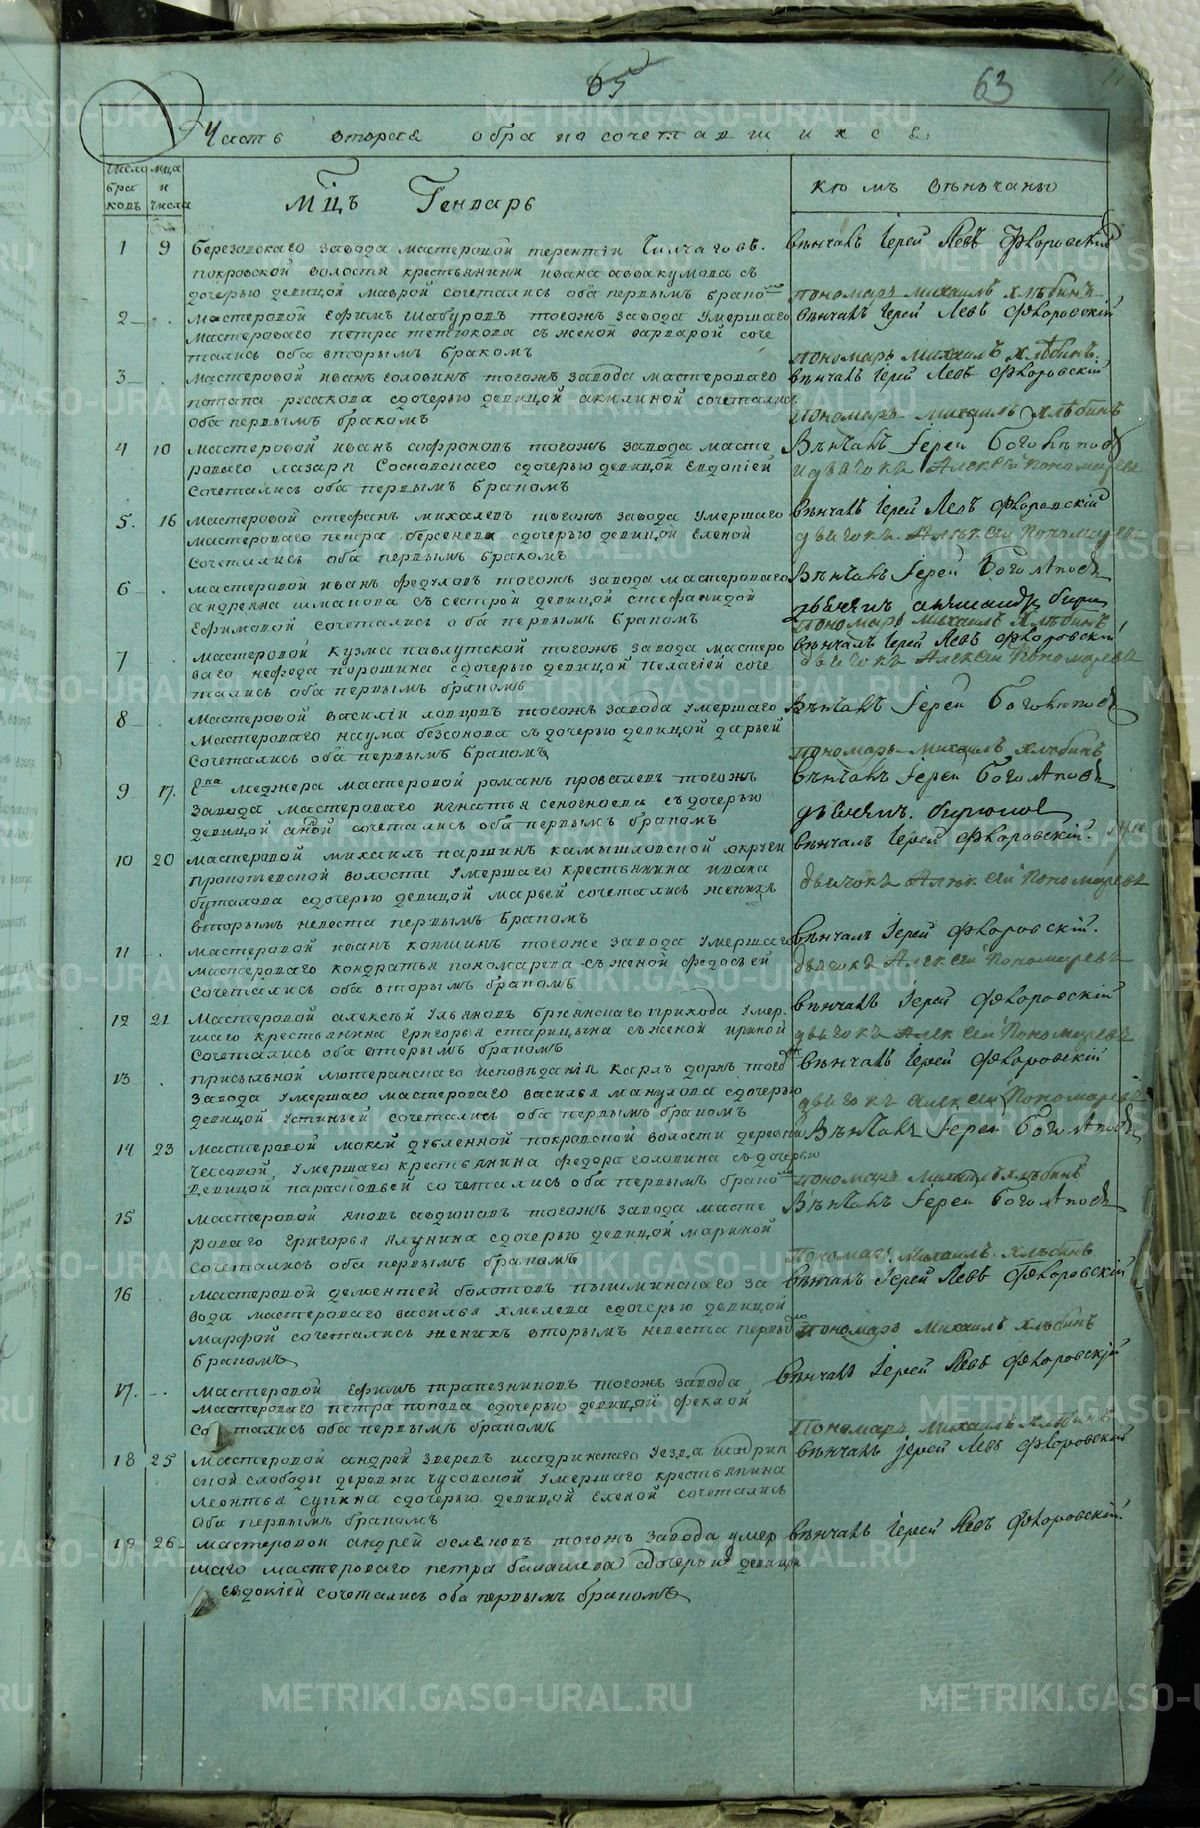 65
63
Часть вторая о бракосочетавшихся
число бра ковъ
мца и числа
Мцъ Генварь
кемъ венчаны
1 9 Березовскаго завода мастеровой терентіи Чилчаговъ.
покровской волости крестьянини ивана аввакумова съ
дочерью девицой маврой сочетались оба первымъ брако
венчалъ Іерей Левъ Флоровскій
пономарь михаилъ хлѣбинъ
2 . мастеровой ефимъ шабуровъ тогожъ завода умершаго
мастероваго петра тетюкова съ женой варварой соче
тались оба вторымъ бракомъ
вѣнчалъ Іерей Левъ Флоровскій
пономарь михаилъ хлѣбинъ
3 . мастеровой иванъ головинъ тогожъ завода мастероваго
потапа русакова сдочерью девицой акилиной сочетались
оба первымъ бракомъ
вѣнчалъ Іерей Левъ Флоровскій
пономарь михаилъ хлѣбинъ
4 10 мастеровой иванъ софроновъ тогожъ завода масте
роваго лазаря Сосновскаго сдочерью девицой Евдопіей
сочетались оба первымъ бракомъ
Вѣнчалъ Іерей Боголѣповъ
и дьячокъ Алексей Пономаревъ
5. 16 мастеровой стефанъ михалевъ тогожъ завода умершаго
мастероваго петра берсенева сдочерью девицой еленой
сочетались оба первымъ бракомъ
вѣнчалъ Іерей Левъ Флоровскій
дьячокъ Алексей Пономаревъ
6 . мастеровой иванъ федуловъ тогожъ завода мастероваго
андреяна шмакова съ сестрой девицой стефанидой
Ефимовой сочетались оба первымъ бракомъ
Вѣнчалъ Іерей Боголѣповъ
пономарь Михаилъ Хлѣбинъ
7 . мастеровой кузма павлутской тогожъ завода мастеро
ваго нефеда порошина сдочерью девицой пелагіей соче
тались оба первымъ бракомъ
вѣнчалъ Іерей Левъ Флоровскій
дьячокъ Алексей Пономаревъ
8 . мастеровой василіи ловцовъ тогожъ завода умершаго
мастероваго наума безсонова съдочерью девицой дарьей
сочетались оба первымъ бракомъ
Вѣнчалъ Іерей Боголѣповъ
пономарь Михаилъ хлѣбинъ
9 17. меджера мастеровой романъ провалевъ тогожъ
завода мастероваго игнатья сеногноева съдочерью
девицой анной сочетались оба первымъ бракомъ
вѣнчалъ Іерей Боголѣповъ
дьячекъ. бирюковъ
10 20 мастеровой михаилъ паршинъ камышловской округи
прокопьевской волости умершаго крестьянина ивана
буталова сдочерью девицой марьей сочетались женихъ
вторымъ невеста первымъ бракомъ
вѣнчалъ Іерей Флоровскій.
дьячокъ Алексей Пономаревъ
11 . мастеровой иванъ копшинъ тогоже завода умершаго
мастероваго кондратья пономарева съженой федосьей
сочетались оба вторымъ бракомъ
вѣнчалъ Іерей Флоровскій.
дьячокъ Алексей Пономаревъ
12 21 мастеровой алексѣй ульяновъ прихода умер
шаго крестьянина григорья старицына съженой ириной
сочетались оба вторымъ бракомъ
вѣнчалъ Іерей Флоровскій
дьячокъ Алексей Пономаревъ
13 . присыльной лютеранскаго исповѣданія карлъ дорнъ тогожъ
завода умершаго мастероваго василья манулова сдочерью
девицой устиньей сочетались оба первымъ бракомъ
вѣнчалъ Іерей Флоровскій
дьячокъ Алексей Пономаревъ
14 23 мастеровой мокей дубленной покровской волости деревни
чесовой, умершаго крестьянина федора головина съдочерью
девицой парасковьей сочетались оба первымъ брако
Вѣнчалъ Іерей Боголѣповъ
пономарь Михаилъ хлѣбинъ
15 мастеровой яковъ авдюковъ тогожъ завода масте
роваго григорья ялунина сдочерью девицой мариной
сочетались оба первымъ бракомъ
Вѣнчалъ Іерей Боголѣповъ
пономарь Михаилъ. Хлѣбинъ
16 . мастеровой дементей болотовъ пышминскаго за
вода мастероваго василья хмелева сдочерью девицой
марфой сочетались женихъ вторымъ невеста первы
бракомъ
вѣнчалъ Іерей Левъ Флоровскій
пономарь Михаилъ хлѣбинъ
17. . мастеровой ефимъ трапезниковъ тогожъ завода
мастероваго петра попова сдочерью девицой феклой
со тались оба первымъ бракомъ
вѣнчалъ Іерей Левъ Флоровскій
Пономарь Михаилъ Хлѣбинъ
18 25 мастеровой андрей зверевъ шадринскаго уезда шадрин
ской слободы деревни чусовской умершаго крестьянина
леонтья супкина сдочерью девицой еленой сочетались
оба первымъ бракомъ
вѣнчалъ іерей Левъ Флоровскій
19 26 мастеровои андрей аслековъ тогожъ завода умер
шаго мастероваго петра балашева сдочерью девицой
евдокіей сочетались оба первымъ бракомъ
вѣнчалъ Іерей Левъ Флоровскій.
METRIKI.GASO-URAL.RU